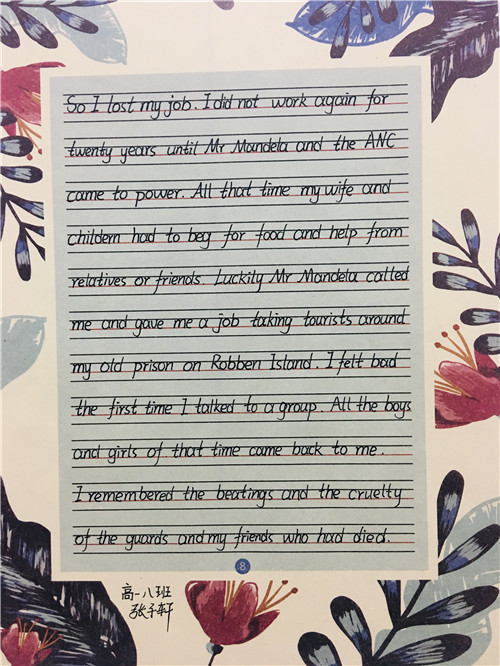 So I lost my job. I did not work again for
twenty years until Mr Mandela and the ANC
came to power. All that time my wife and
childern had to beg for food and help from
relatives or friends. Luckily Mr Mandela called
me and gave me a job taking tourists around
my old prison on Robben Island. I felt bad
the first time I talked to a group. All the boys
and girls of that time came back to me.
I remembered the beatings and the cruelty
of the guards and my friends who had died.
8
高一八班
张子轩